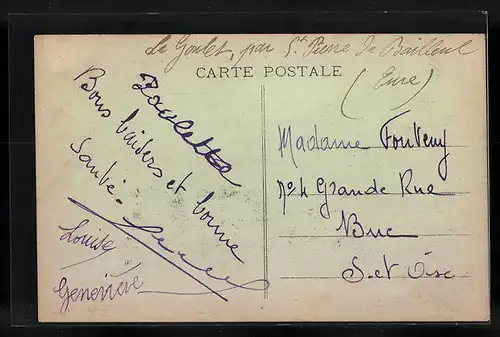 Le Goulet, par St Pierre de Bailleul
(Eure)
CARTE POSTALE
Bons baisers et bonne
Santé.
Louise
Geneviève
Madame Fonteny
No 4 Grande Rue
Buc
S. et Oise